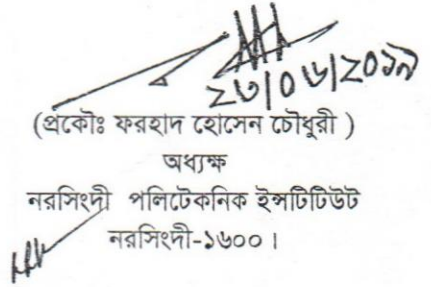 ২৩/০৬/২০১৯
(প্রকৌঃ ফরহাদ হোসেন চৌধুরী )
অধ্যক্ষ
নরসিংদী পলিটেকনিক ইন্সটিটিউট
নরসিংদী-১৬০০ ।